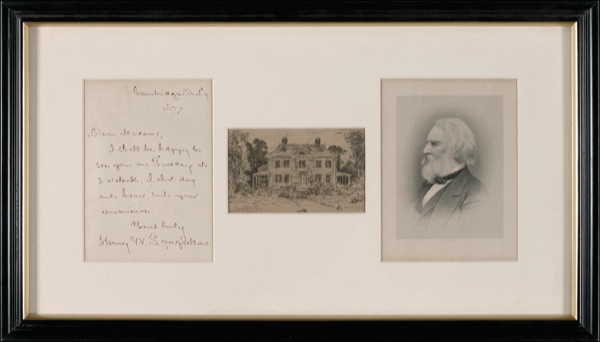 Cambridge Feb 9
1877
Dear Madam,
I shall be happy to
see you on Tuesday at
3 o'clock, if that day
and hour suit your
convenience.
Yours truly
Henry W. Longfellow